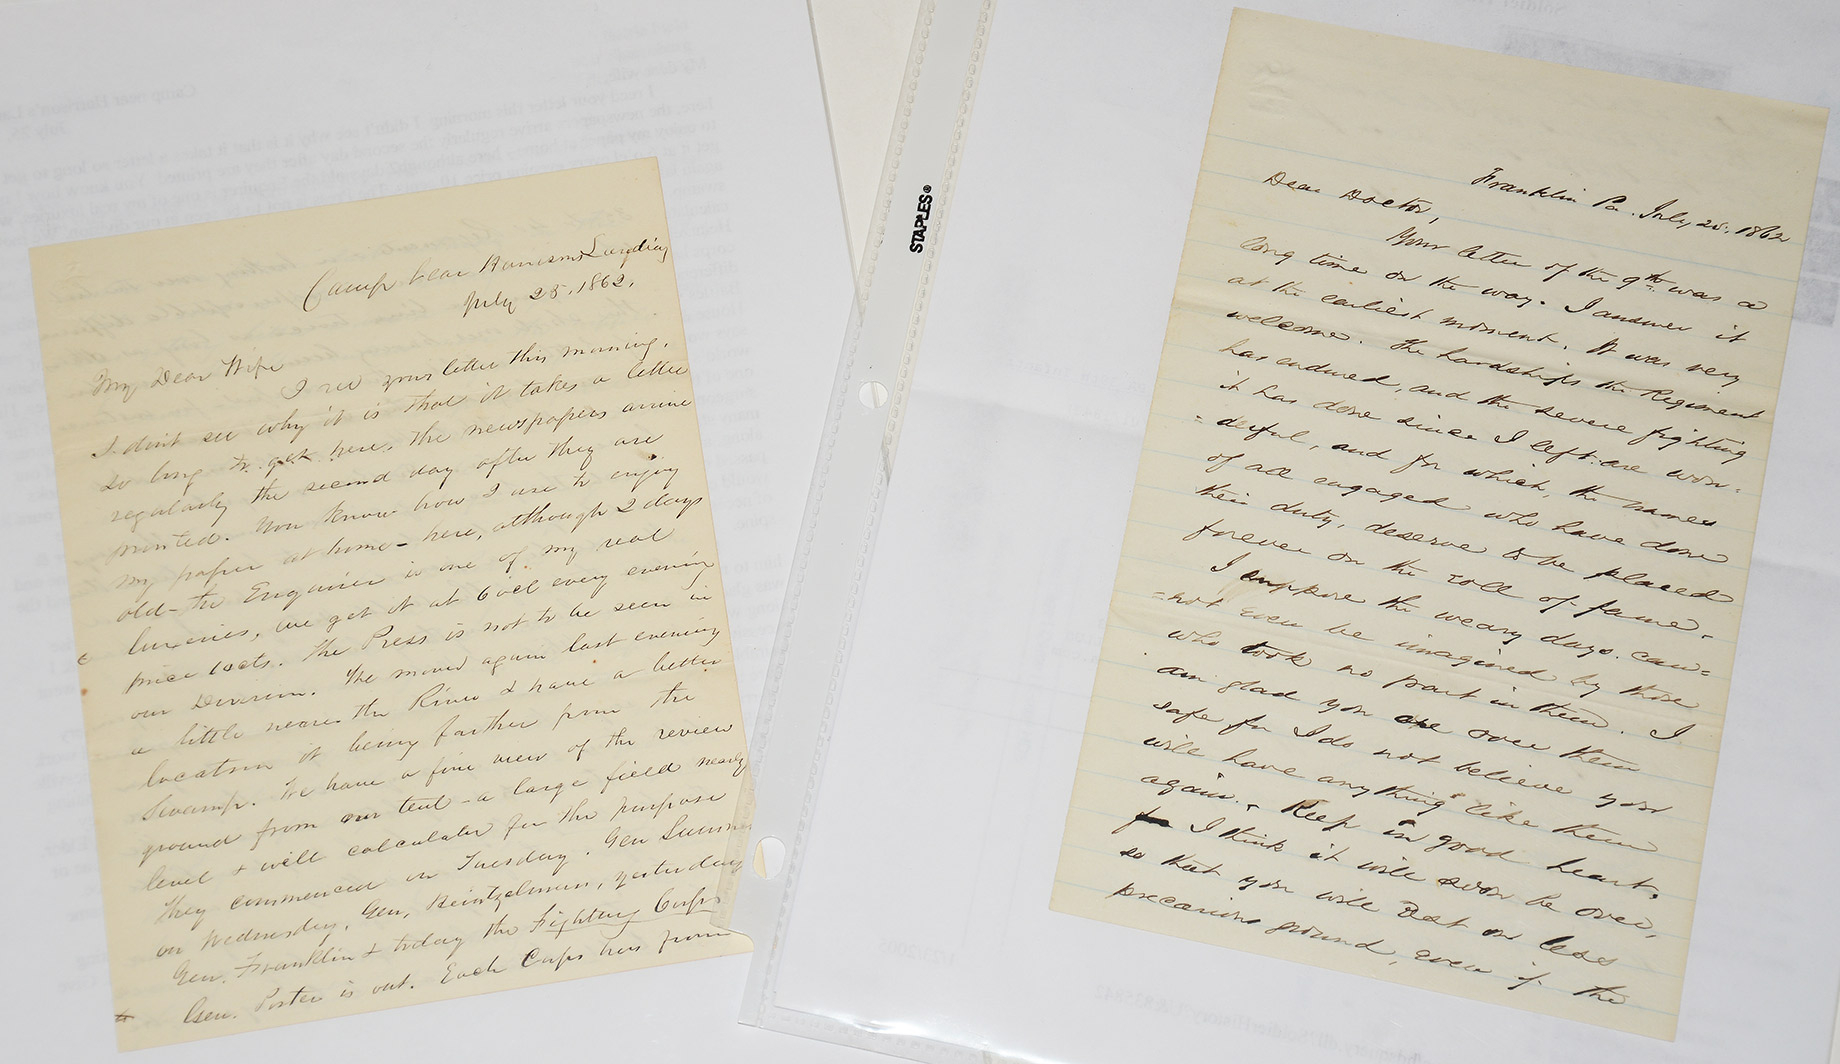 Camp near Harrisons Landing
July 25, 1862.
My Dear Wife
I recd your letter this morning.
I dont see why it is that it takes a letter
so long to get here, the newspapers arrive
regularly the second day after they are
printed. You know how I use to enjoy
my paper at home – here, although 2 days
old – the Enquirer is one of my real
luxuries, we get it at 6 ocl every evening
price 10cts. The Press is not to be seen in
our Division. We moved again last evening
a little nearer the River & have a better
location it being farther from the
Swamp. We have a fine view of the review
ground from our tent – a large field nearly
level & well calculated for the purpose
They commenced on Tuesday. Gen Sumner
on Wednesday, Gen, Heintzelman, yesterday
Gen. Franklin & today the Fighting Corps
Gen. Porter is out. Each Corps has from
STAPLES®
Franklin Pa. July 25, 1862
Dear Doctor,
Your letter of the 9th was a
long time on the way. I answer it
at the earliest moment. It was very
welcome. The hardships the Regiment
has endured, and the severe fighting
it has done since I left are won-
-derful, and for which, the names
of all engaged who have done
their duty, deserve to be placed
forever on the roll of fame.
I suppose the weary days can=
=not even be imagined by those
who took no part in them. I
am glad you are over them
safe for I do not believe you
will have anything like them
again. Keep in good heart,
I think it will soon be over,
so that you will rest on less
precarious ground, even if the